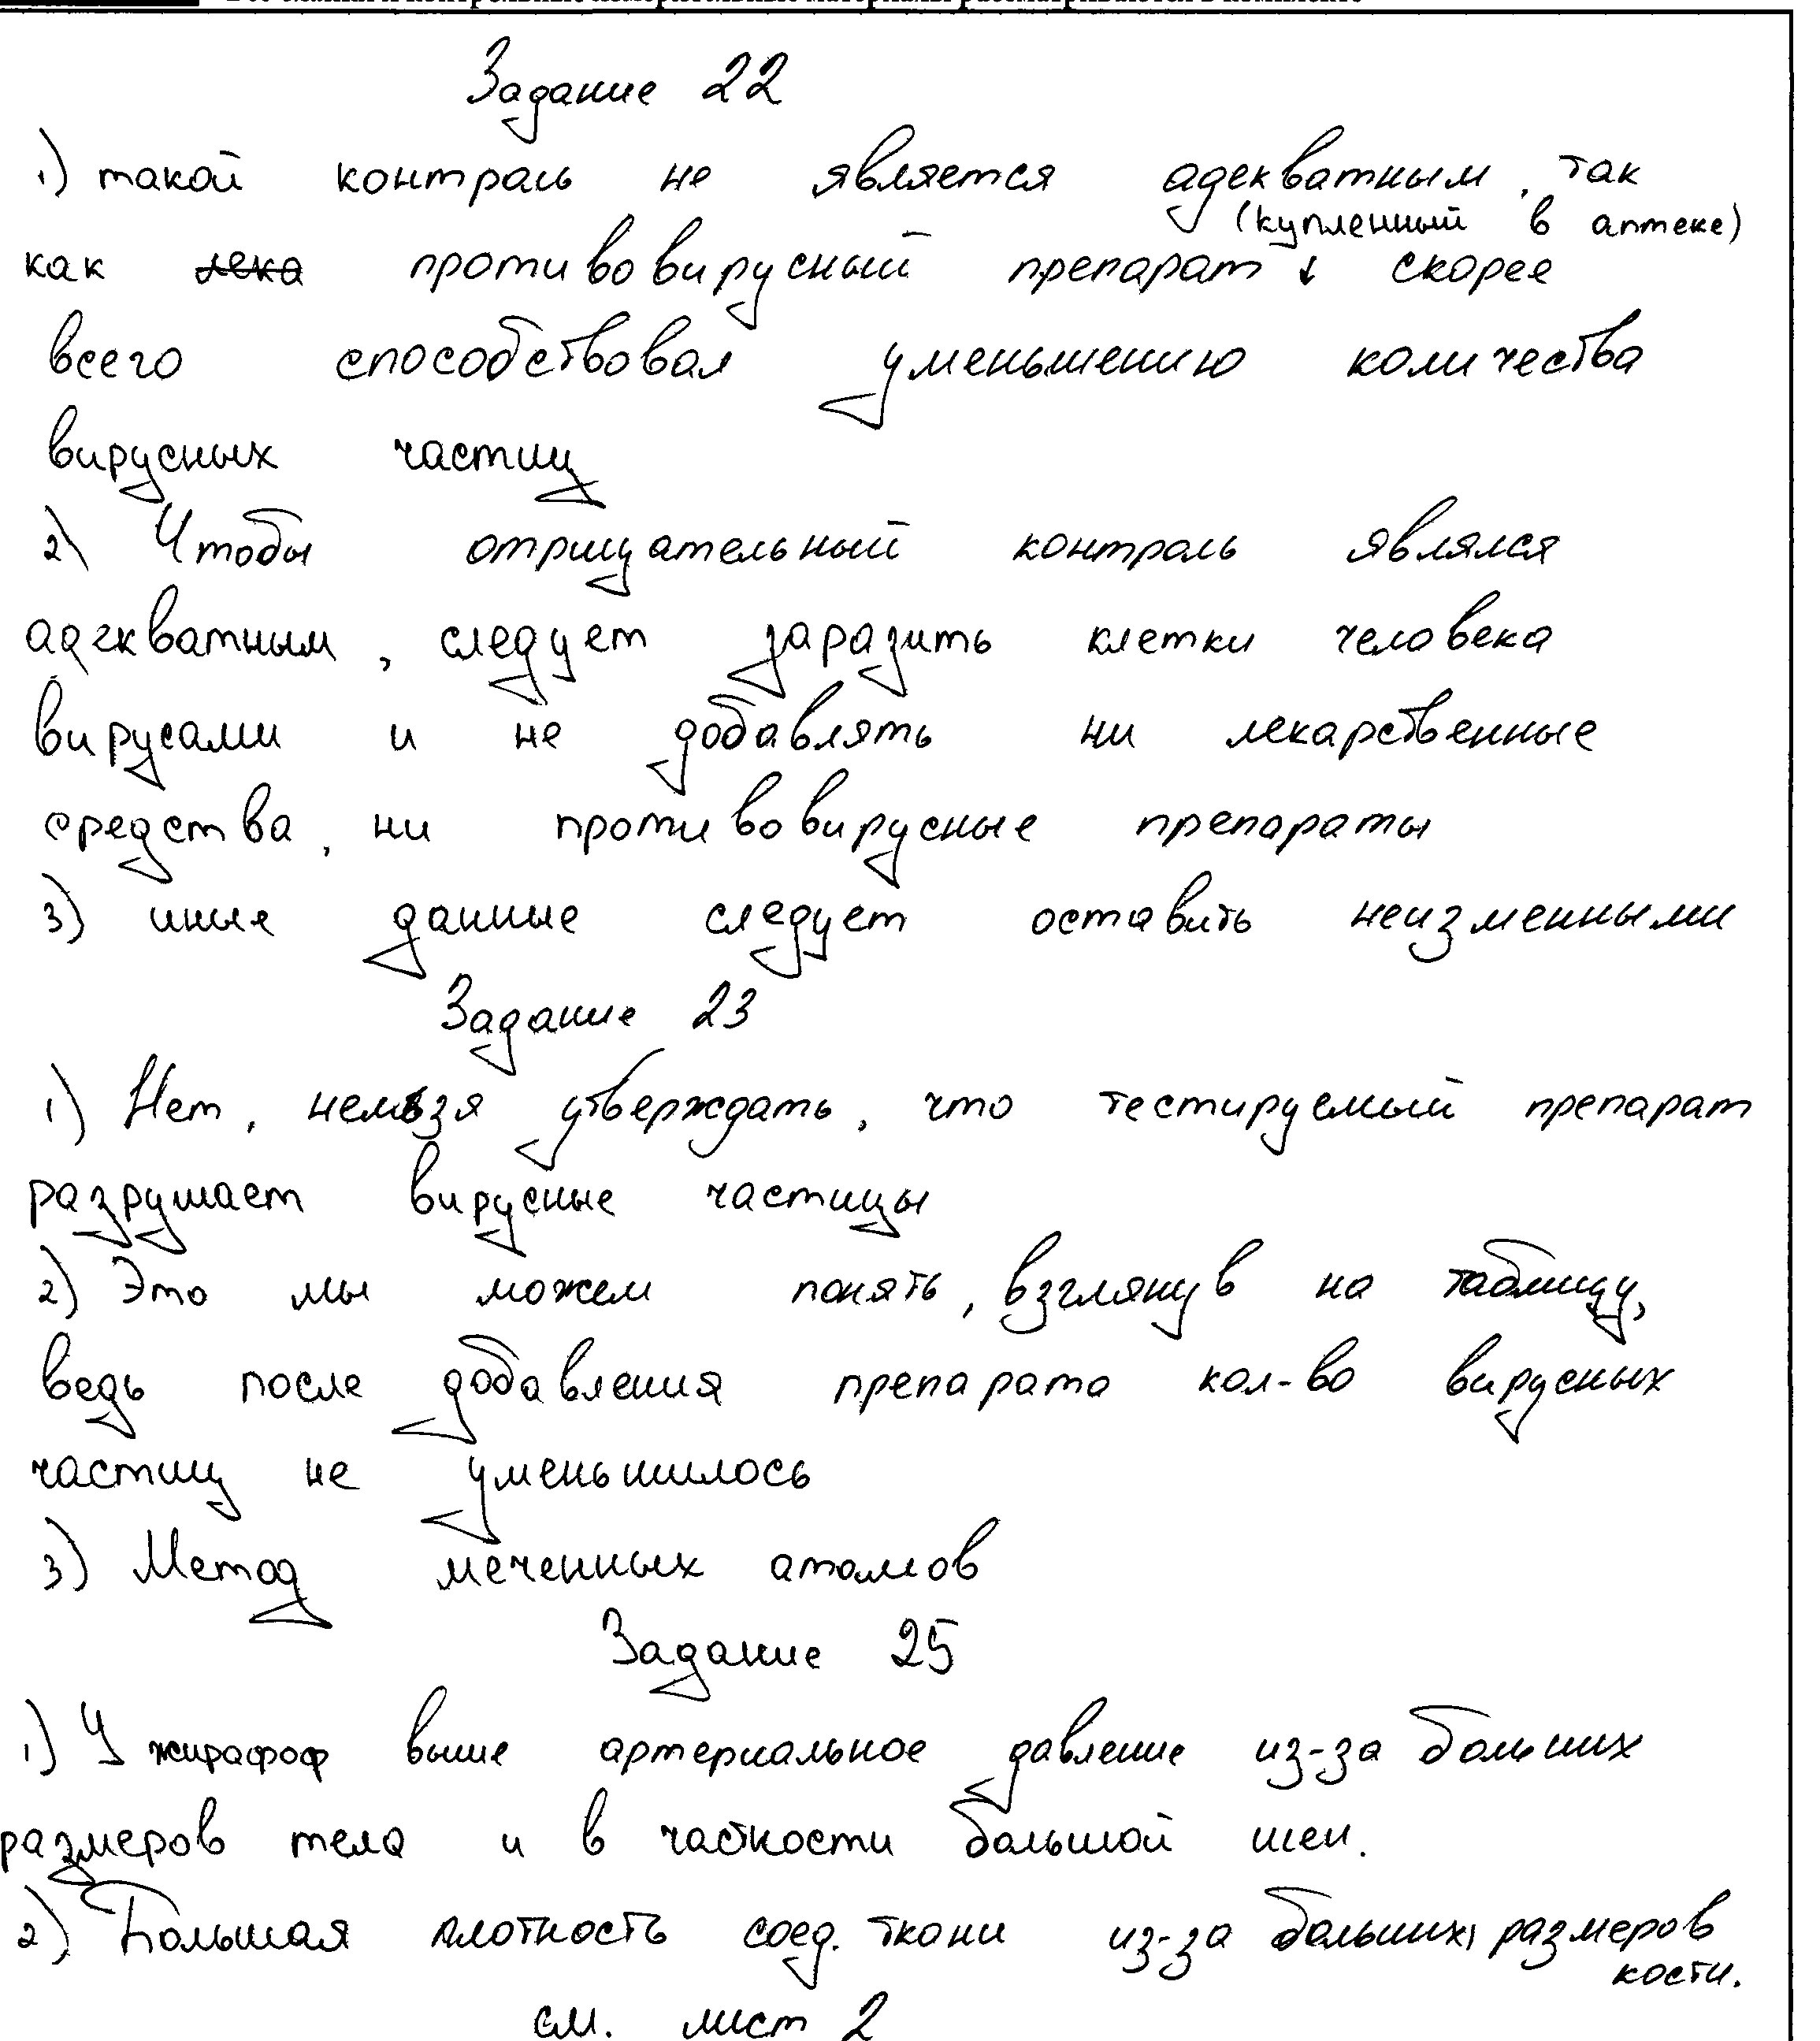 Все бланки и контрольные измерительные материалы рассматриваются в комплекте
Задание 22
1) такой контроль не является адекватным, так
(купленный в аптеке)
как лека противовирусный препарат ↓ скорее
всего способствовал уменьшению количества
вирусных частиц
2) Чтобы отрицательный контроль являлся
адекватным, следует заразить клетки человека
вирусами и не добавлять ни лекарственные
средства, ни противовирусные препараты
3) иные данные следует оставить неизменными
Задание 23
1) Нет, нельзя утверждать, что тестируемый препарат
разрушает вирусные частицы
2) Это мы можем понять, взглянув на таблицу,
ведь после добавления препарата кол-во вирусных
частиц не уменьшилось
3) Метод меченных атомов
Задание 25
1) У жирафоф выше артериальное давление из-за больших
размеров тела и в часности большой шеи.
2) Большая плотность соед. ткани из-за больших размеров
кости.
см. лист 2